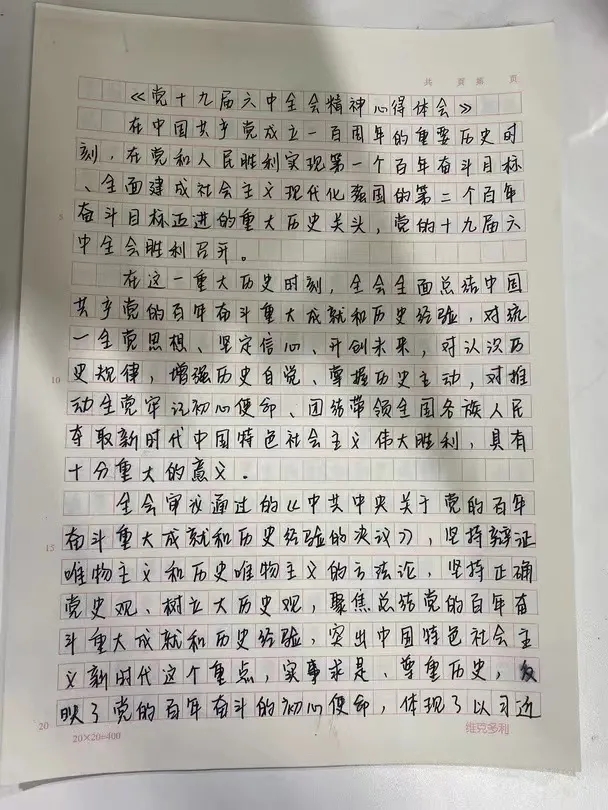 共 页 第 页
《党十九届六中全会精神心得体会》
在中国共产党成立一百周年的重要历史时
刻，在党和人民胜利实现第一个百年奋斗目标
、全面建成社会主义现代化强国的第二个百年
5
奋斗目标迈进的重大历史关头，党的十九届六
中全会胜利召开。
在这一重大历史时刻，全会全面总结中国
共产党的百年奋斗重大成就和历史经验，对统
一全党思想、坚定信心、开创未来，对认识历
10
史规律，增强历史自觉、掌握历史主动，对推
动全党牢记初心使命、团结带领全国各族人民
夺取新时代中国特色社会主义伟大胜利，具有
十分重大的意义。
全会审议通过的《中共中央关于党的百年
15
奋斗重大成就和历史经验的决议》，坚持辩证
唯物主义和历史唯物主义的方法论，坚持正确
党史观、树立大历史观，聚焦总结党的百年奋
斗重大成就和历史经验，突出中国特色社会主
义新时代这个重点，实事求是、尊重历史，反
20
映了党的百年奋斗的初心使命，体现了以习近
20×20=400 维克多利